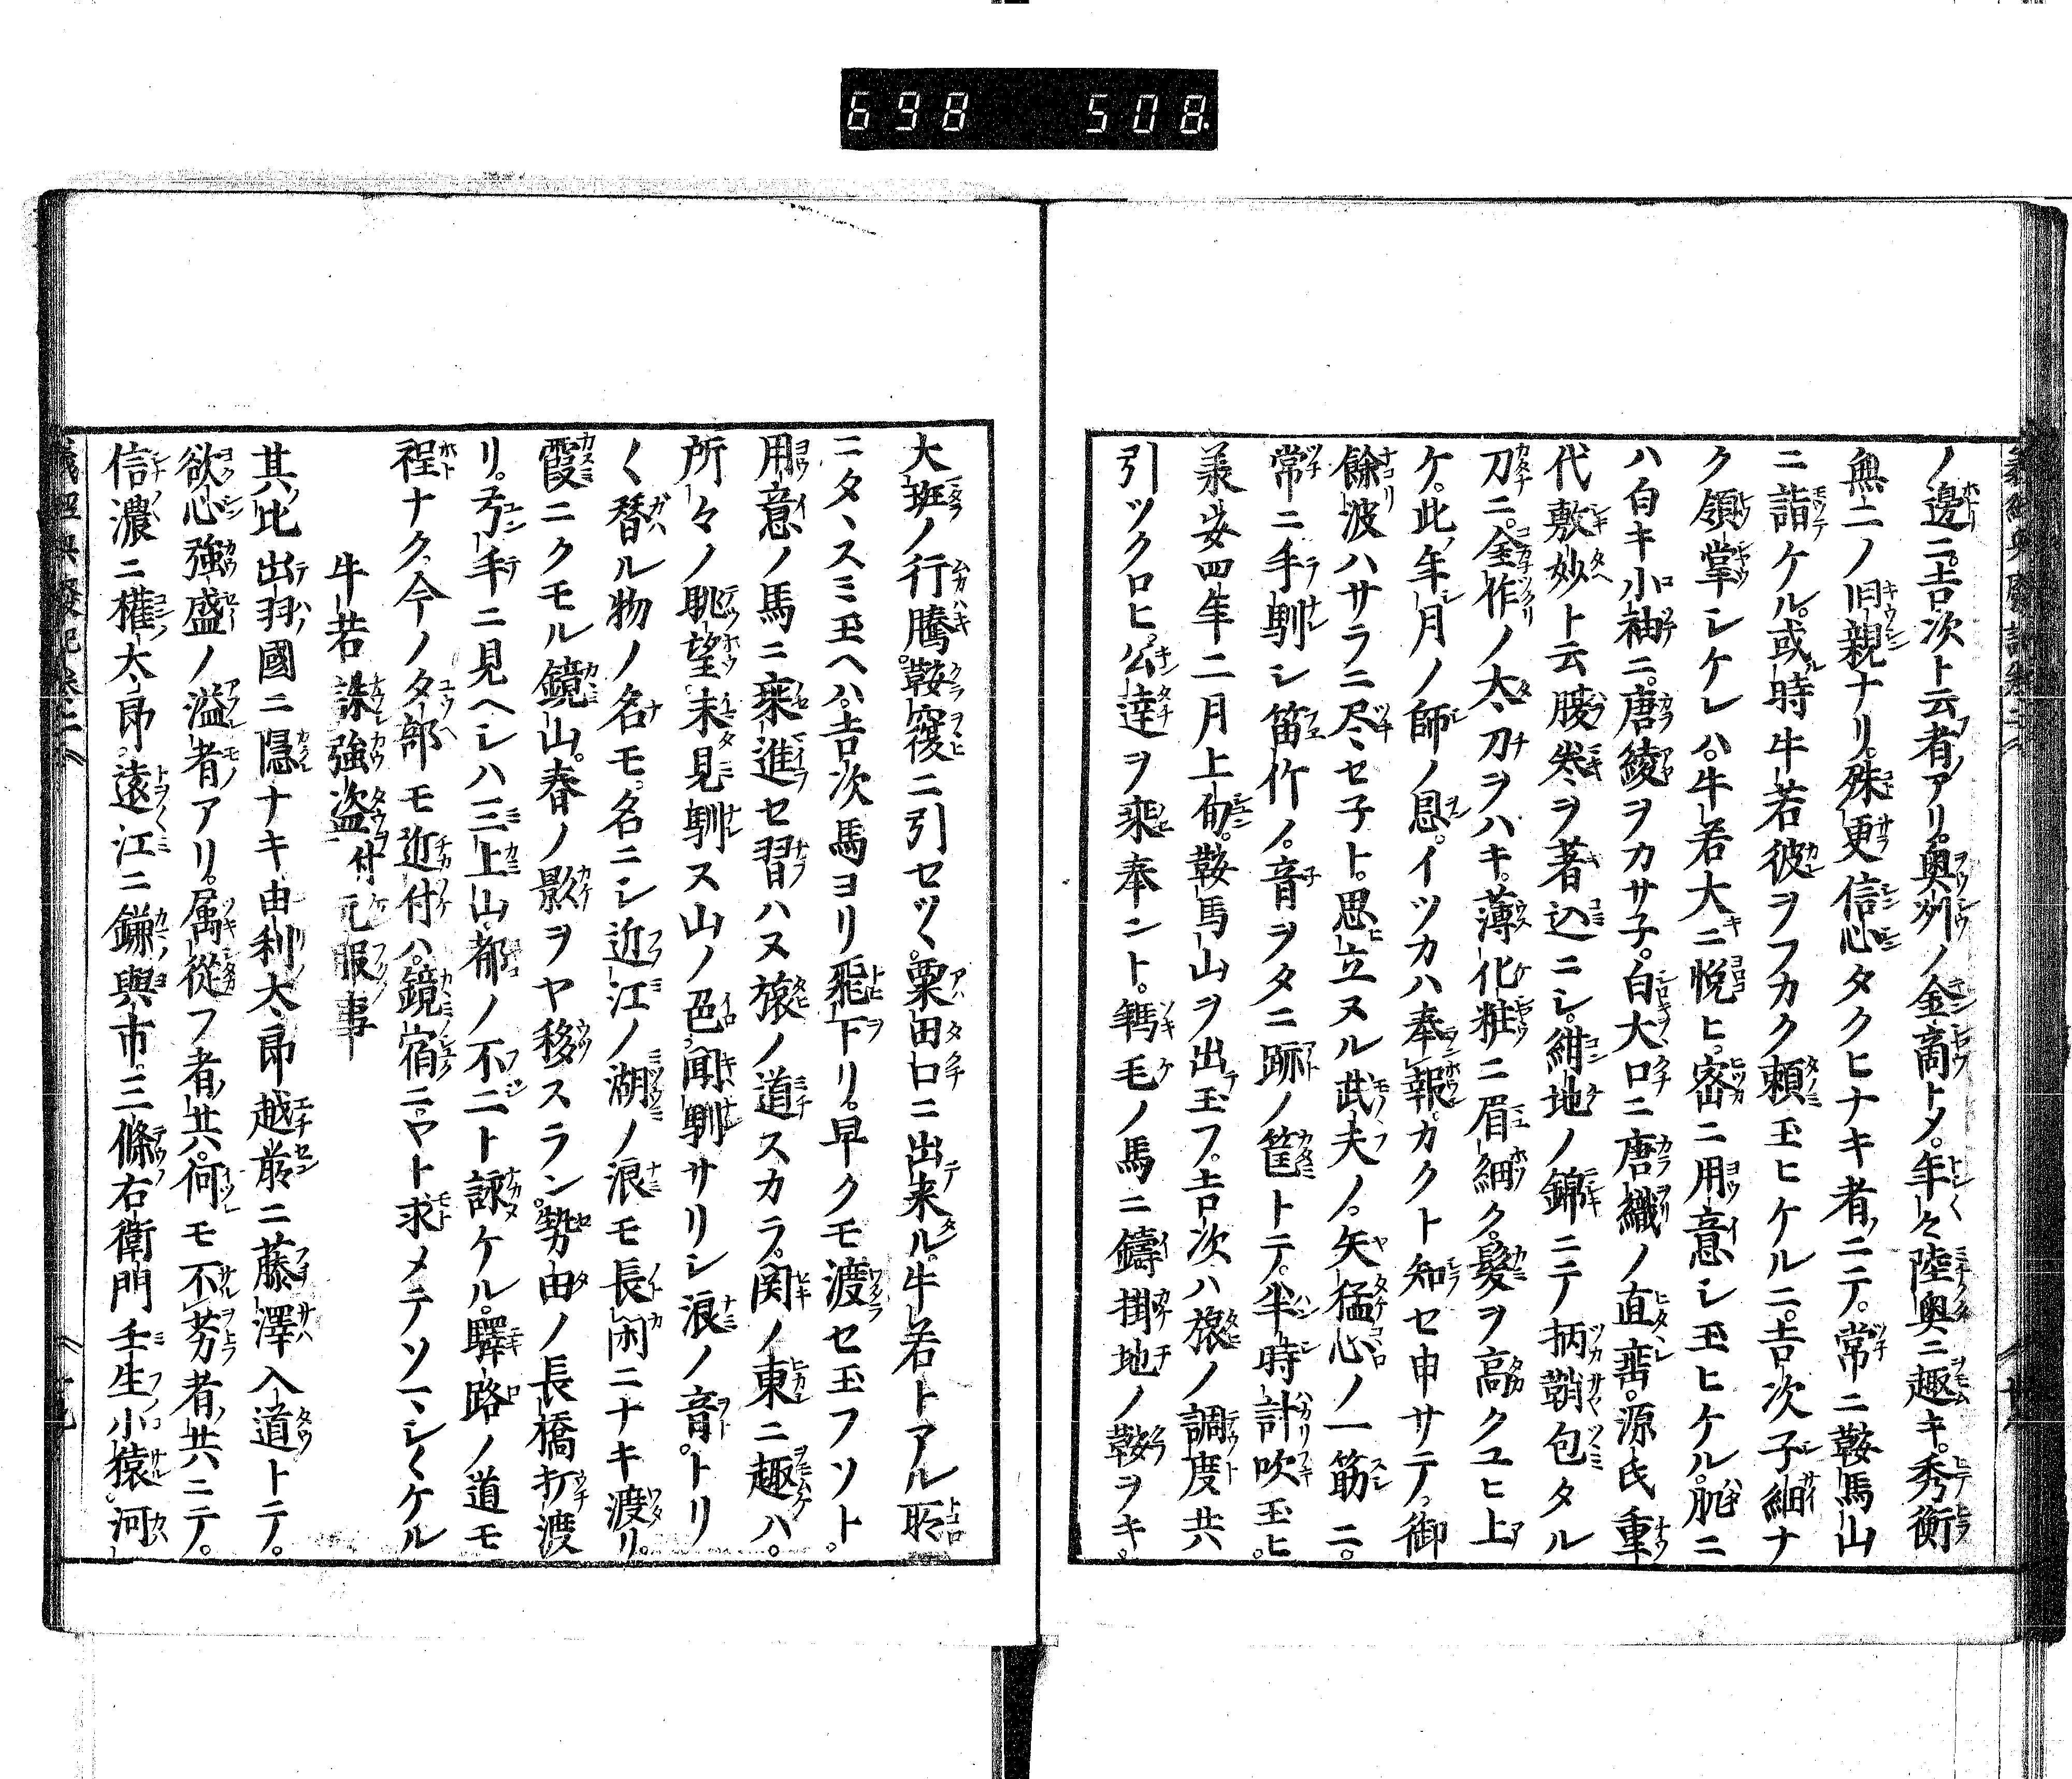 698 508.
ノ邊ニ。吉次ト云者アリ。奥州ノ金商トメ。年々陸奥ニ趣キ。秀衡
無二ノ旧親ナリ。殊更信心タクヒナキ者ニテ。常ニ鞍馬山
ニ詣ケル。或時牛若彼ヲフカク頼玉ヒケルニ。吉次子細ナ
ク領掌シケレハ。牛若大ニ悦ヒ。密ニ用意シ玉ヒケル。肌ニ
ハ白キ小袖ニ。唐綾ヲカサ子。白大口ニ唐織ノ直垂。源氏重
代敷妙ト云腹巻ヲ著込ニシ。紺地ノ錦ニテ柄鞘包タル
刀ニ。金作ノ太刀ヲハキ。薄化粧ニ眉細ク。髪ヲ高クユヒ上
ケ。此年月ノ師ノ恩。イツカハ奉報。カクト知セ申サテ。御
餘波ハサラニ尽セ子ト。思立ヌル武夫ノ。矢猛心ノ一筋ニ。
常ニ手馴シ笛竹ノ。音ヲタニ跡ノ筐トテ。半時計吹玉ヒ。
承安四年二月上旬。鞍馬山ヲ出玉フ。吉次ハ旅ノ調度共
引ツクロヒ。公達ヲ乗奉ント。鴾毛ノ馬ニ鑄掛地ノ鞍ヲキ。
大班ノ行騰。鞍覆ニ引セツヽ。粟田口ニ出来ル。牛若トアル所
ニタヽスミ玉ヘハ。吉次馬ヨリ飛下リ。早クモ渡セ玉フソト。
用意ノ馬ニ乗進セ。習ハヌ旅ノ道スカラ。関ノ東ニ趣ハ。
所々ノ眺望未見馴ス山ノ色。聞馴サリシ浪ノ音。トリ
〱替ル物ノ名モ。名ニシ近江ノ湖ノ浪モ長閑ニナキ渡リ。
霞ニクモル鏡山。春ノ影ヲヤ移スラン。勢田ノ長橋打渡
リ。弓手ニ見ヘシハ三上山。都ノ不二ト詠ケル。驛路ノ道モ
程ナク。今ノタ部モ近付ハ。鏡宿ニヤト求メテソマシ〱ケル
牛若誅強盗付元服事
其比出羽國ニ隠ナキ由利太郎。越前ニ藤澤入道トテ。
欲心強盛ノ溢者アリ。属從フ者共。何モ不劣者共ニテ。
信濃ニ權太郎。遠江ニ鎌與市。三條右衛門壬生小猿。河